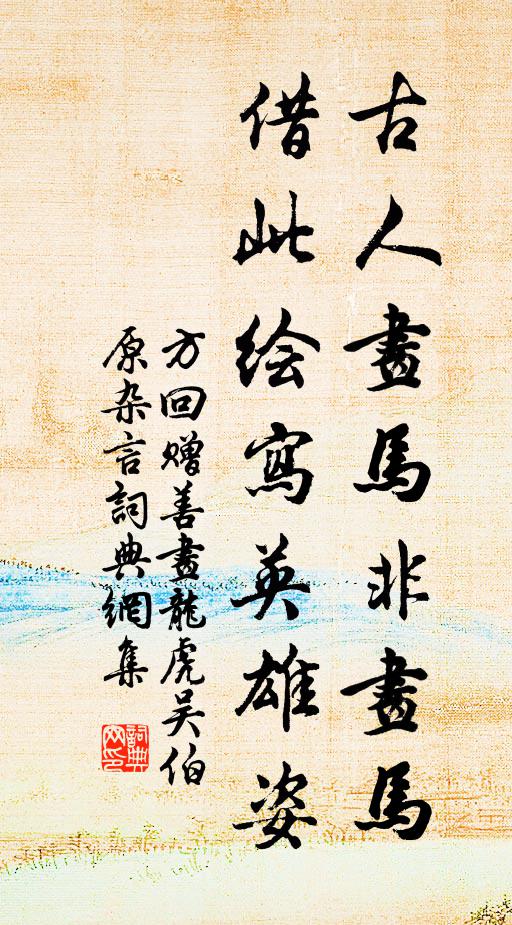 古人畫馬非畫馬
借此绘寫英雄姿
方回赠善畫龍虎吴伯
原杂言詞典網集
詞典
网印